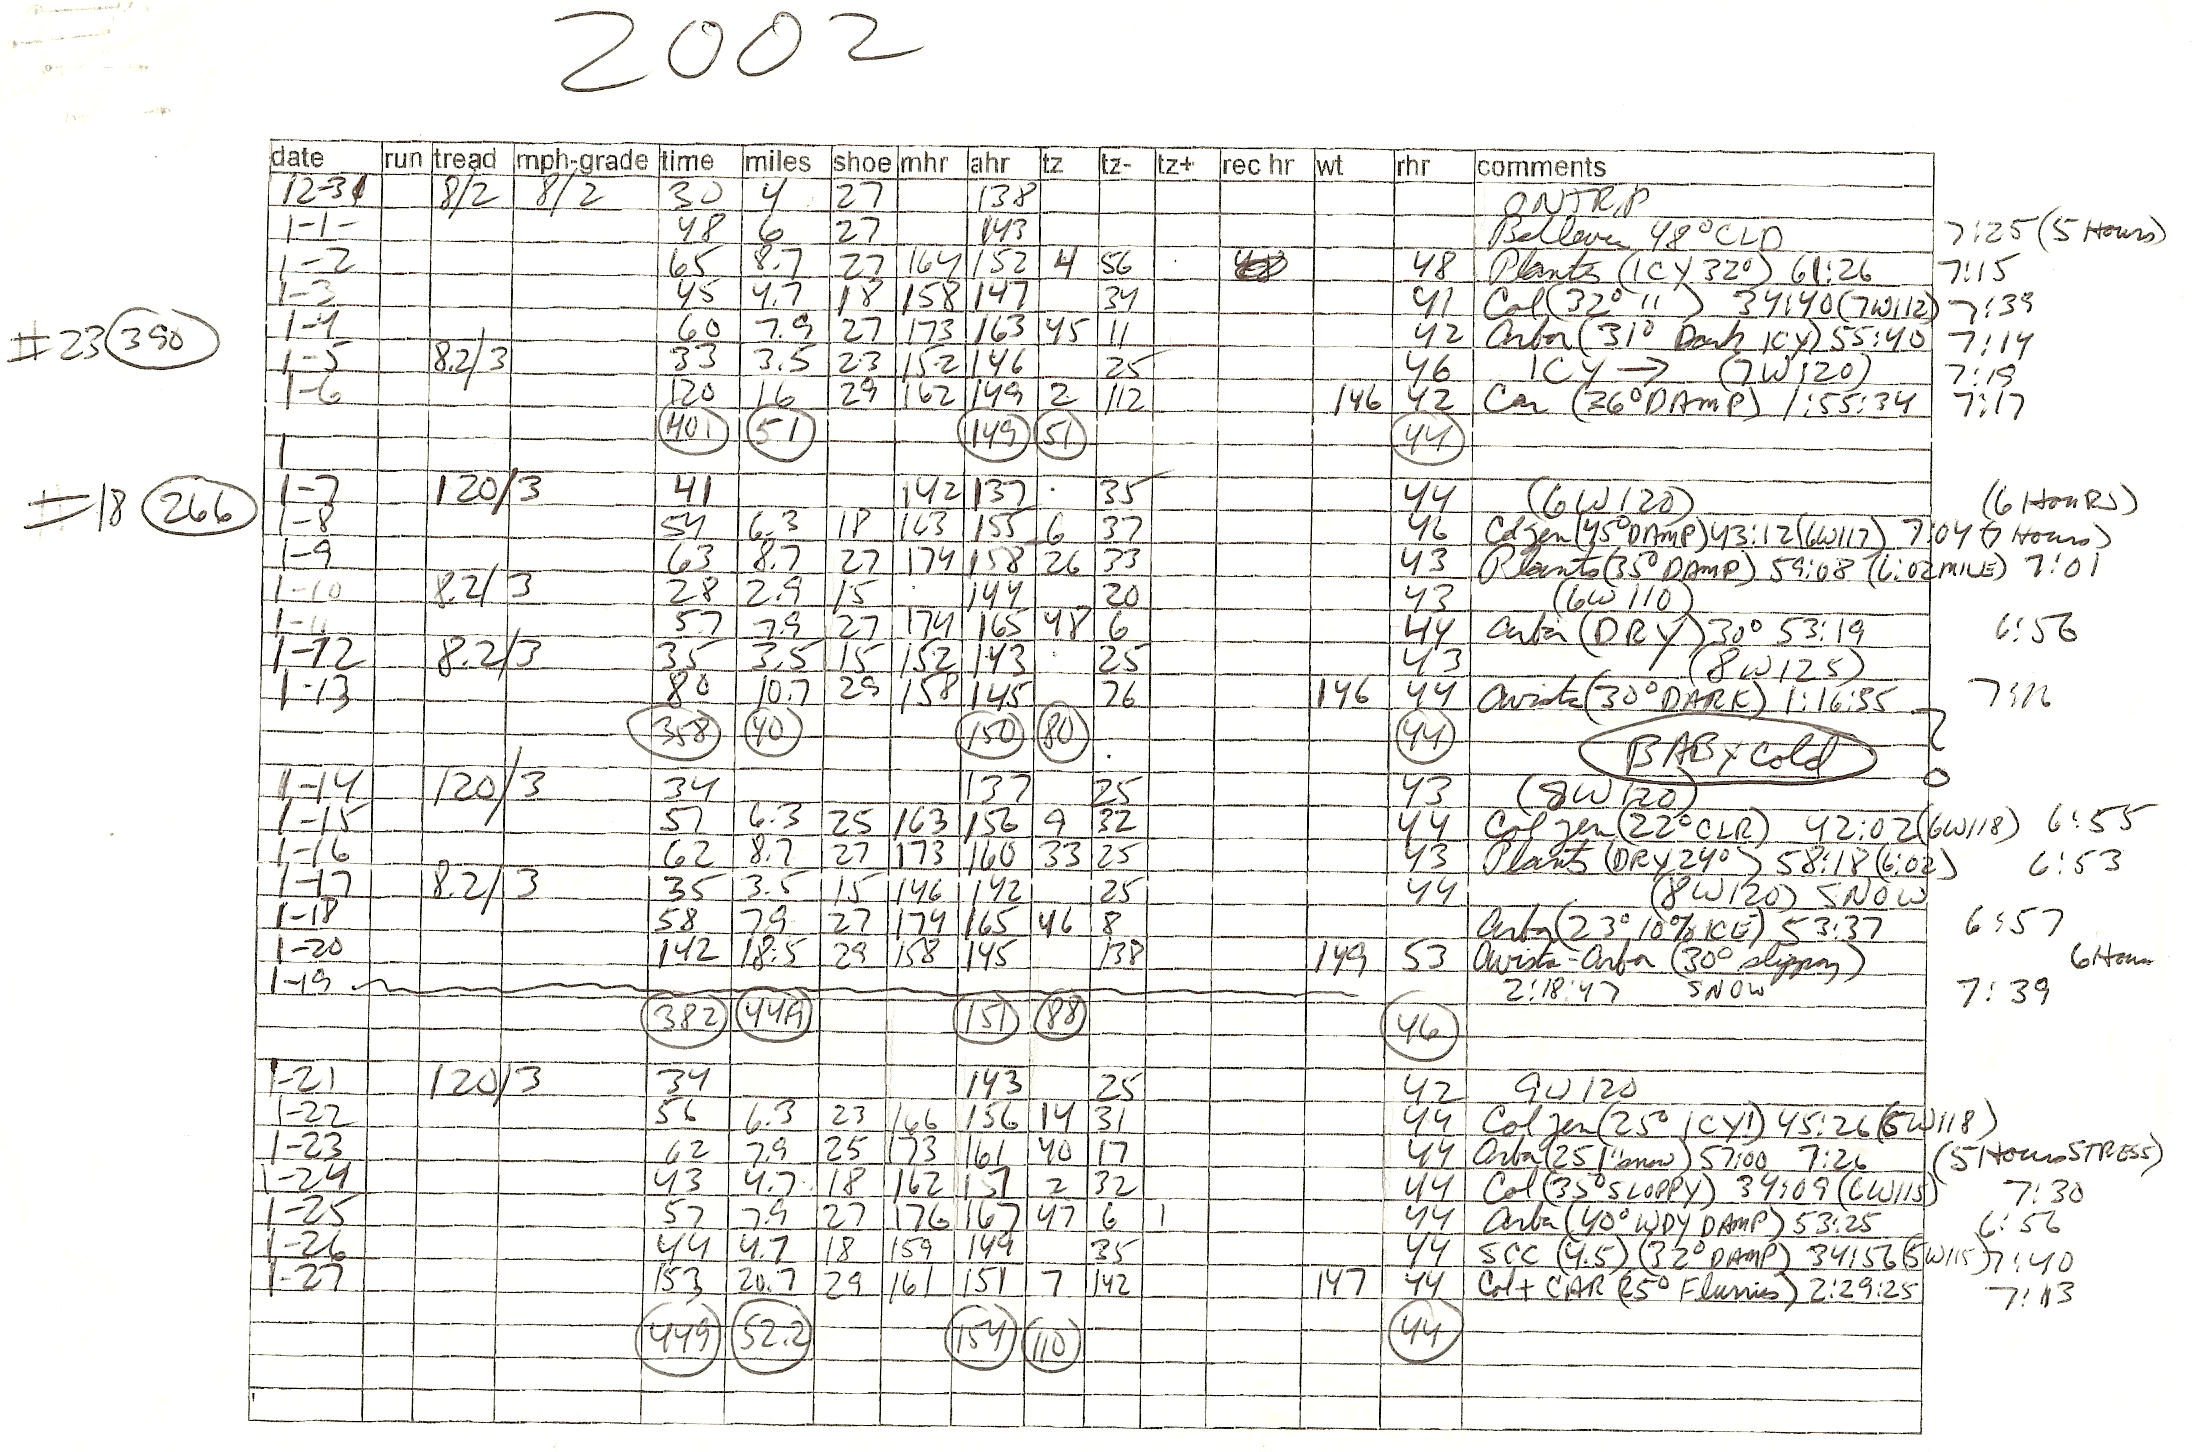 2002
date run tread mph-grade time miles shoe mhr ahr tz tz- tz+ rec hr wt rhr comments
12-31 8/2 8/2 30 4 27 138 ON TRIP
1-1- 48 6 27 143 48° CLD 7:25 (5 Hours)
1-2 65 8.7 27 164 152 4 56 48 Plants (ICY 32°) 61:26 7:15
1-3 45 4.7 18 158 147 34 41 Col (32° 11 ) 34:40 (7W112) 7:39
#23 390
1-4 60 7.9 27 173 163 45 11 42 Arbor (31° Dark ICY) 55:40 7:14
1-5 8.2/3 33 3.5 23 152 146 25 46 ICY → (7W120) 7:19
1-6 120 16 29 162 149 2 112 146 42 Car (26° DAMP) 1:55:34 7:17
401 51 149 51 44
1
#18 266
1-7 120/3 41 142 137 35 44 (6W120) (6 HOURS)
1-8 54 6.3 18 163 155 6 37 46 Col zen (45° DAMP) 43:12 (6W117) 7:04 (7 Hours)
1-9 63 8.7 27 174 158 26 33 43 Plants (35° DAMP) 59:08 (6:02 MILE) 7:01
1-10 8.2/3 28 2.9 15 144 20 43 (6W110)
1-11 57 7.9 27 174 165 48 6 44 Arbor (DRY) 30° 53:19 6:56
1-12 8.2/3 35 3.5 15 152 143 25 43 (8W125)
1-13 80 10.7 29 158 145 76 146 44 Avista (30° DARK) 1:16:55
358 40 150 80 44 BABY cold
1-14 120/3 34 137 25 43 (8W120)
1-15 57 6.3 25 163 156 9 32 44 Col zen (22° CLR) 42:02 (6W118) 6:55
1-16 62 8.7 27 173 160 33 25 43 Plants (DRY 24°) 58:18 (6:02) 6:53
1-17 8.2/3 35 3.5 15 146 142 25 44 (8W120) SNOW
1-18 58 7.9 27 174 165 46 8 Arbor (23° 10% ICE) 53:37 6:57
1-20 142 18.5 29 158 145 138 149 53 Avista-Arbor (30° slippery) 6 Hours
1-19 2:18:47 SNOW 7:39
382 44.9 151 88 46
1-21 120/3 34 143 25 42 9W120
1-22 56 6.3 23 166 156 14 31 44 Col zen (25° ICY!) 45:26 (5W118)
1-23 62 7.9 25 173 161 40 17 44 Arbor (25 1" snow) 57:00 7:26 (5 Hours STRESS)
1-24 43 4.7 18 162 151 2 32 44 Col (35° SLOPPY) 34:09 (6W115) 7:30
1-25 57 7.9 27 176 167 47 6 1 44 Arbor (40° WDY DAMP) 53:25 6:56
1-26 44 4.7 18 159 149 35 44 SCC (4.5) (32° DAMP) 34:56 (5W115) 7:40
1-27 153 20.7 29 161 151 7 142 147 44 Col + CAR (25° Flurries) 2:29:25 7:13
449 52.2 154 110 44